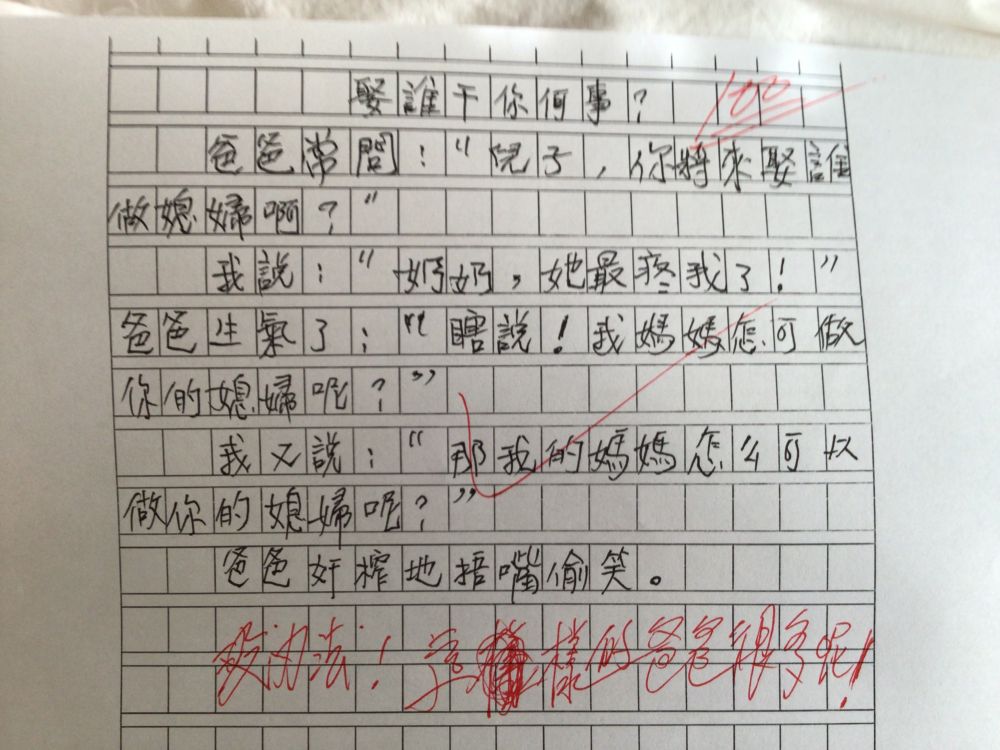 娶誰干你何事?
100
爸爸常問:“兒子,你將來娶誰
做媳婦啊?"
我說:“奶奶,她最疼我了!”
爸爸生氣了:“瞎說!我媽媽怎可做
你的媳婦呢?”
我又說:“那我的媽媽怎么可以
做你的媳婦呢?”
爸爸奸榨地捂嘴偷笑。
沒办法!這樣的爸爸很多呢!